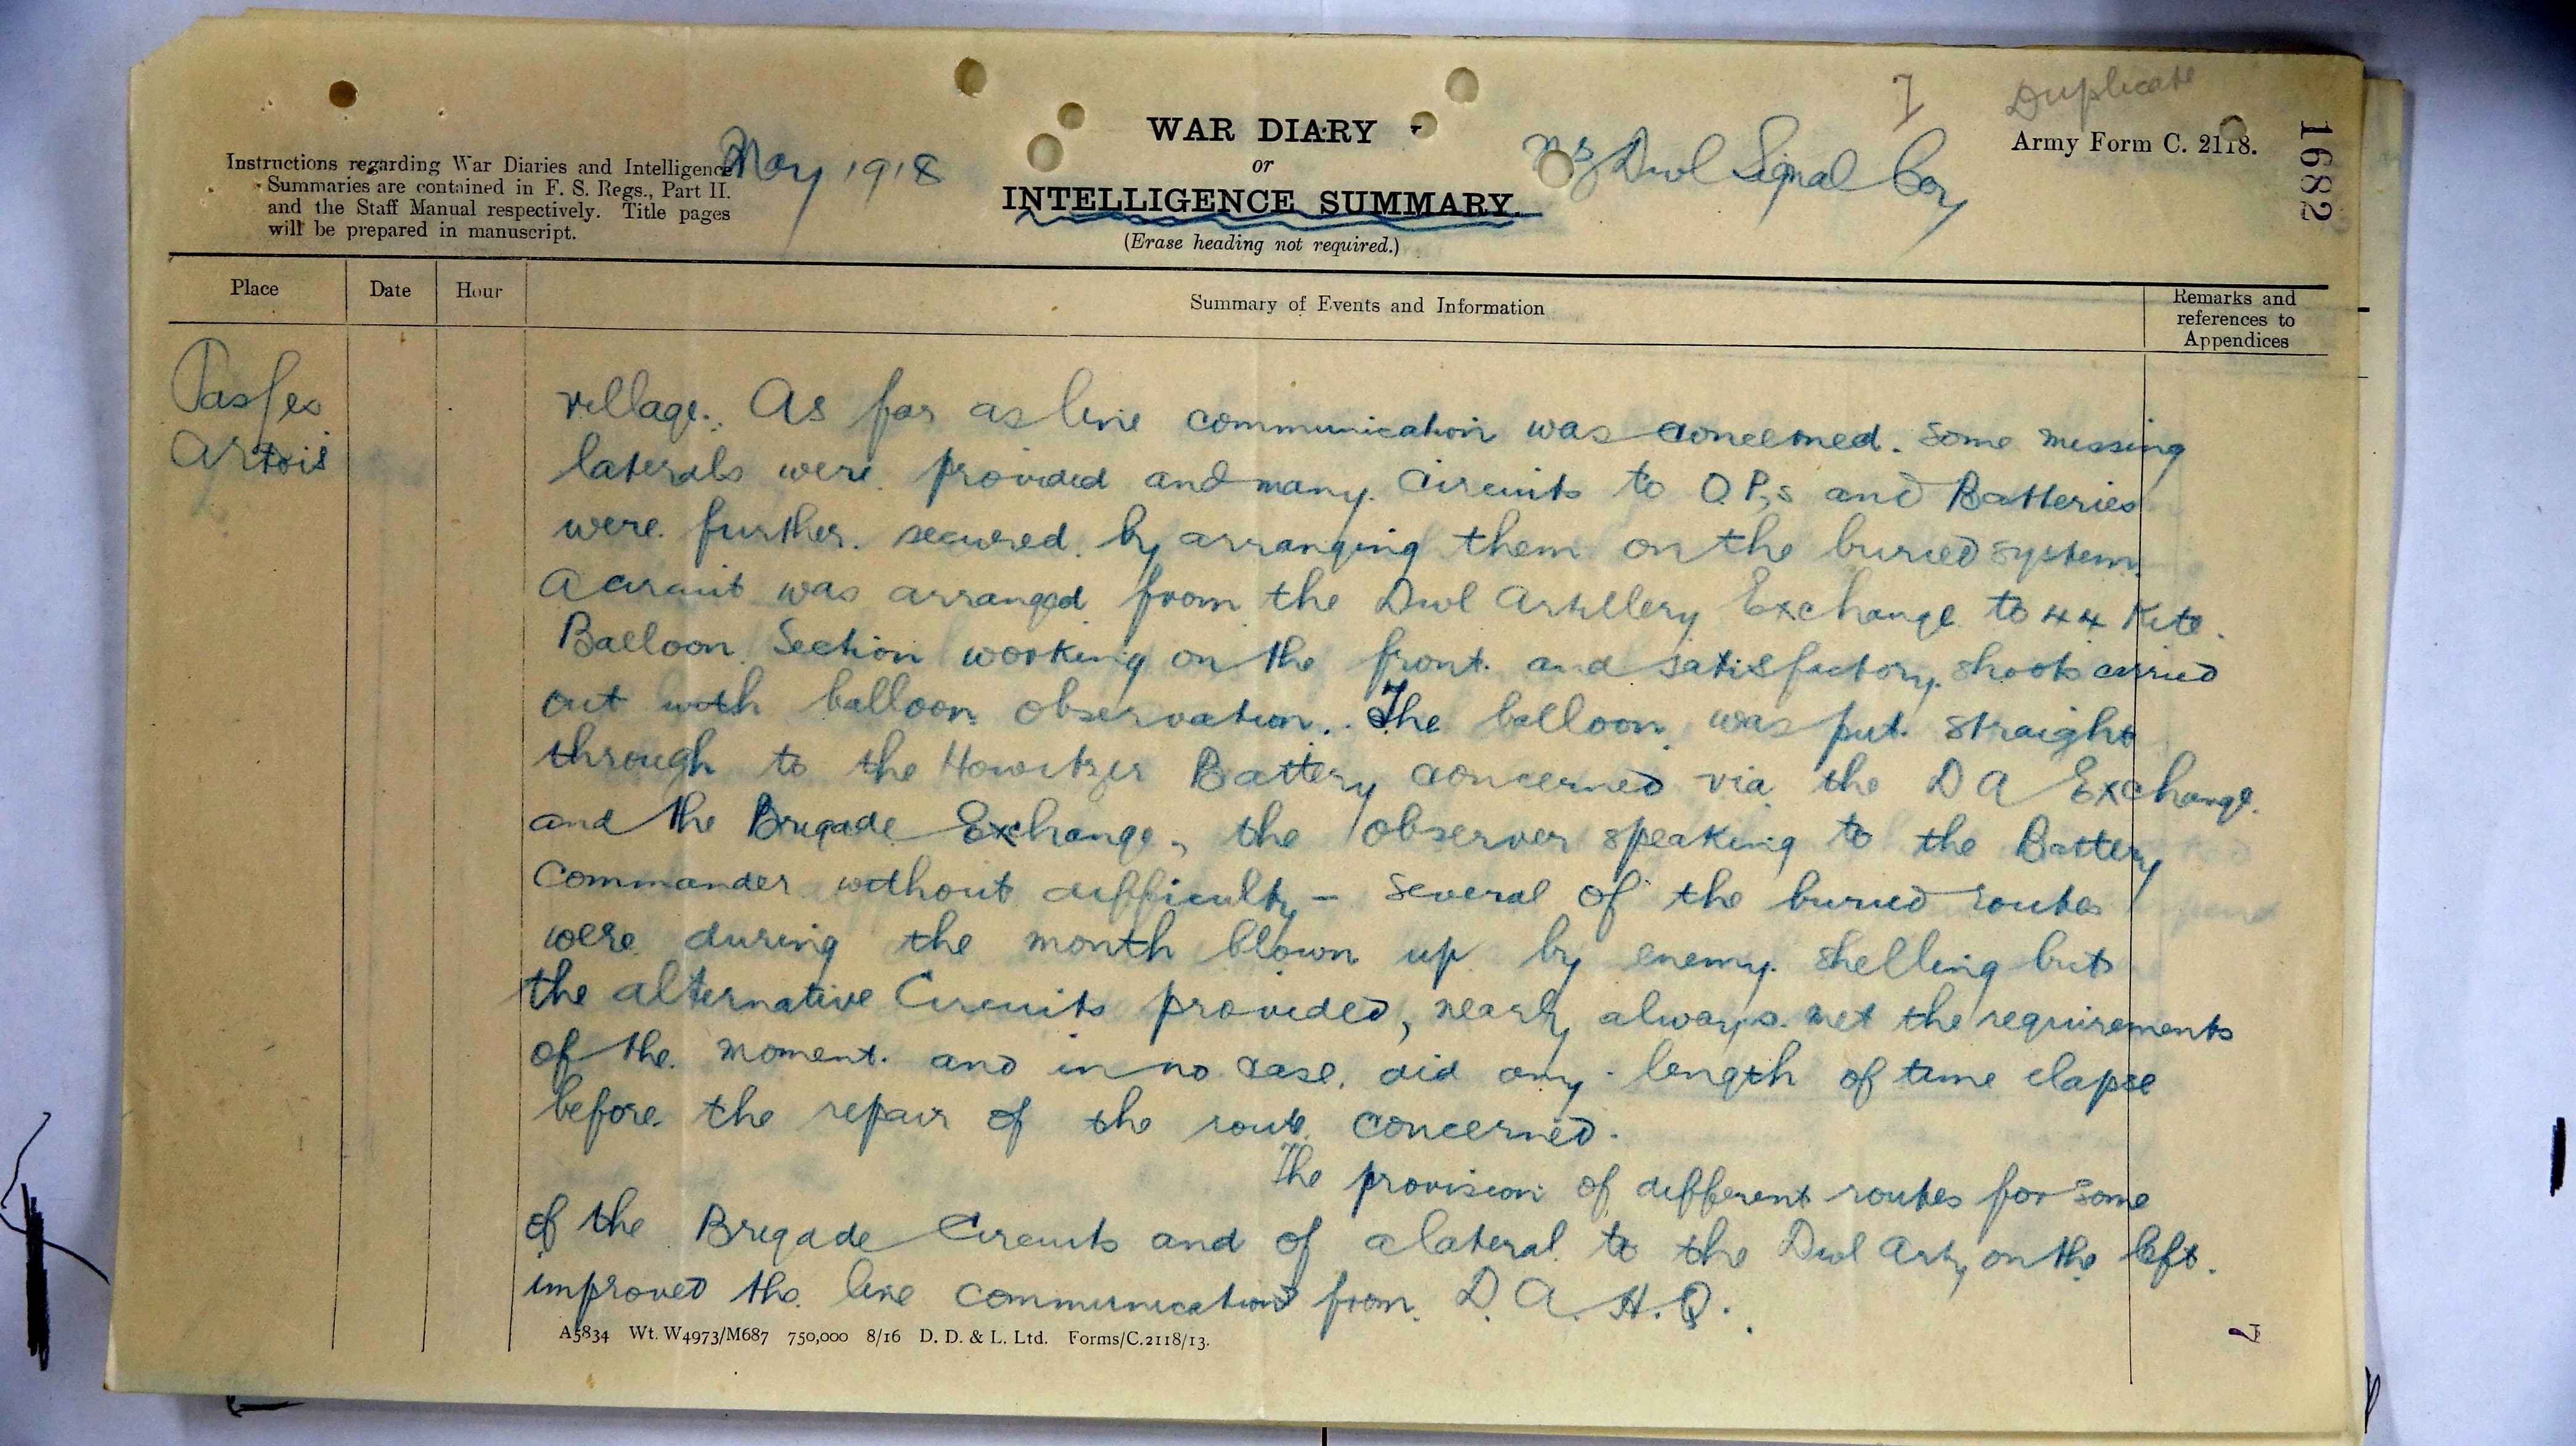 Duplicate
7
Army Form C. 2118.
1682
WAR DIARY
or
INTELLIGENCE SUMMARY.
(Erase heading not required.)
Instructions regarding War Diaries and Intelligence
Summaries are contained in F. S. Regs., Part II.
and the Staff Manual respectively. Title pages
will be prepared in manuscript.
May 1918
NZ Divl Signal Coy
Place
Date
Hour
Summary of Events and Information
Remarks and
references to
Appendices
Pas les
Artois
village. As far as line communication was concerned. some missing
laterals were provided and many circuits to O.P.s and Batteries
were further. secured. by arranging them on the buried system.
A circuit was arranged from the Divl Artillery Exchange to 44 Kite.
Balloon Section working on the front. and satisfactory shoots carried
out with balloon observation. The balloon was put straight
through to the Howitzer Battery concerned via the D A Exchange.
and the Brigade Exchange, the observer speaking to the Battery
Commander without difficulty - several of the buried routes
were during the month blown up by enemy shelling but
the alternative Circuits provided, nearly always met the requirements
of the moment. and in no case. did any length of time elapse
before the repair of the route concerned.
The provision of different routes for some
of the Brigade Circuits and of a lateral to the Divl Arty on the left.
improved the line communication from D. A. H.Q.
A5834 Wt. W4973/M687 750,000 8/16 D. D. & L. Ltd. Forms/C.2118/13.
7